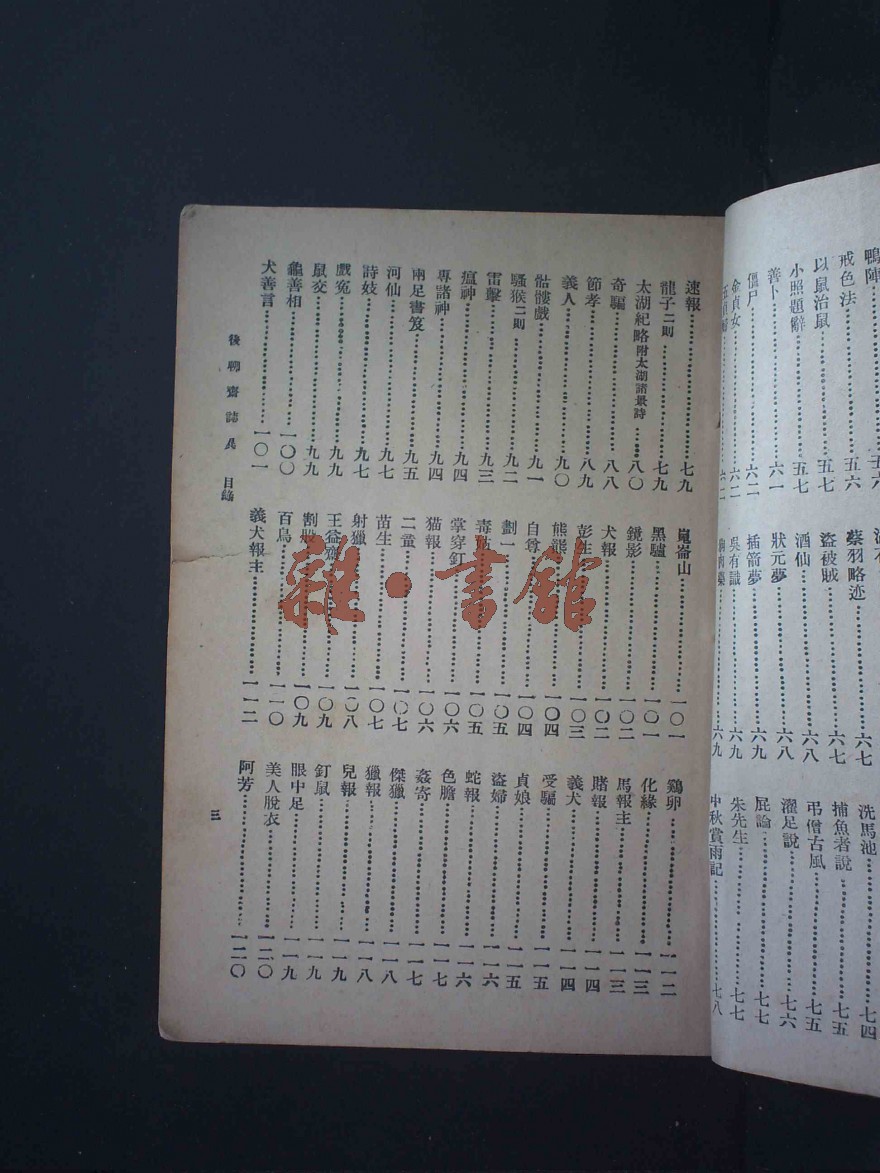 鴨陣……五六
戒色法……五六
以鼠治鼠……五七
小照題辭……五七
善卜……六二
僵尸……六二
金貞女……六二
蔡羽略迹……六七
盜被賊……六七
酒仙……六八
狀元夢……六八
插箭夢……六九
吳有識……六九
洗馬池……七四
捕魚者說……七五
弔僧古風……七五
濯足說……七六
屁論……七七
朱先生……七七
中秋賞雨記……七八
速報……七九
龍子二則……七九
太湖紀略附太湖諸景詩……八〇
奇騙……八八
節孝……八九
義人……九〇
骷髏戲……九一
騷猴二則……九二
雷擊……九三
瘟神……九四
專諸神……九四
兩足書笈……九五
河仙……九七
詩妓……九七
戲冤……九九
鼠交……九九
龜善相……一〇〇
犬善言……一〇一
崑崙山……一〇一
黑驢……一〇一
鏡影……一〇二
犬報……一〇二
彭生……一〇三
熊……一〇四
自尊……一〇四
劃一……一〇五
毒……一〇五
掌穿釘……一〇六
猫報……一〇六
二董……一〇七
苗生……一〇七
射獵……一〇八
王益齋……一〇九
割股……一〇九
百鳥……一一〇
義犬報主……一一二
鷄卵……一一二
化緣……一一三
馬報主……一一三
賭報……一一四
義犬……一一四
受騙……一一五
貞娘……一一五
盜婦……一一六
蛇報……一一六
色膽……一一七
姦寄……一一七
傑獵……一一八
獵報……一一八
兒報……一一九
釘鼠……一一九
眼中足……一一九
美人脫衣……一二〇
阿芳……一二〇
後聊齋誌異 目錄
三
雜·書館